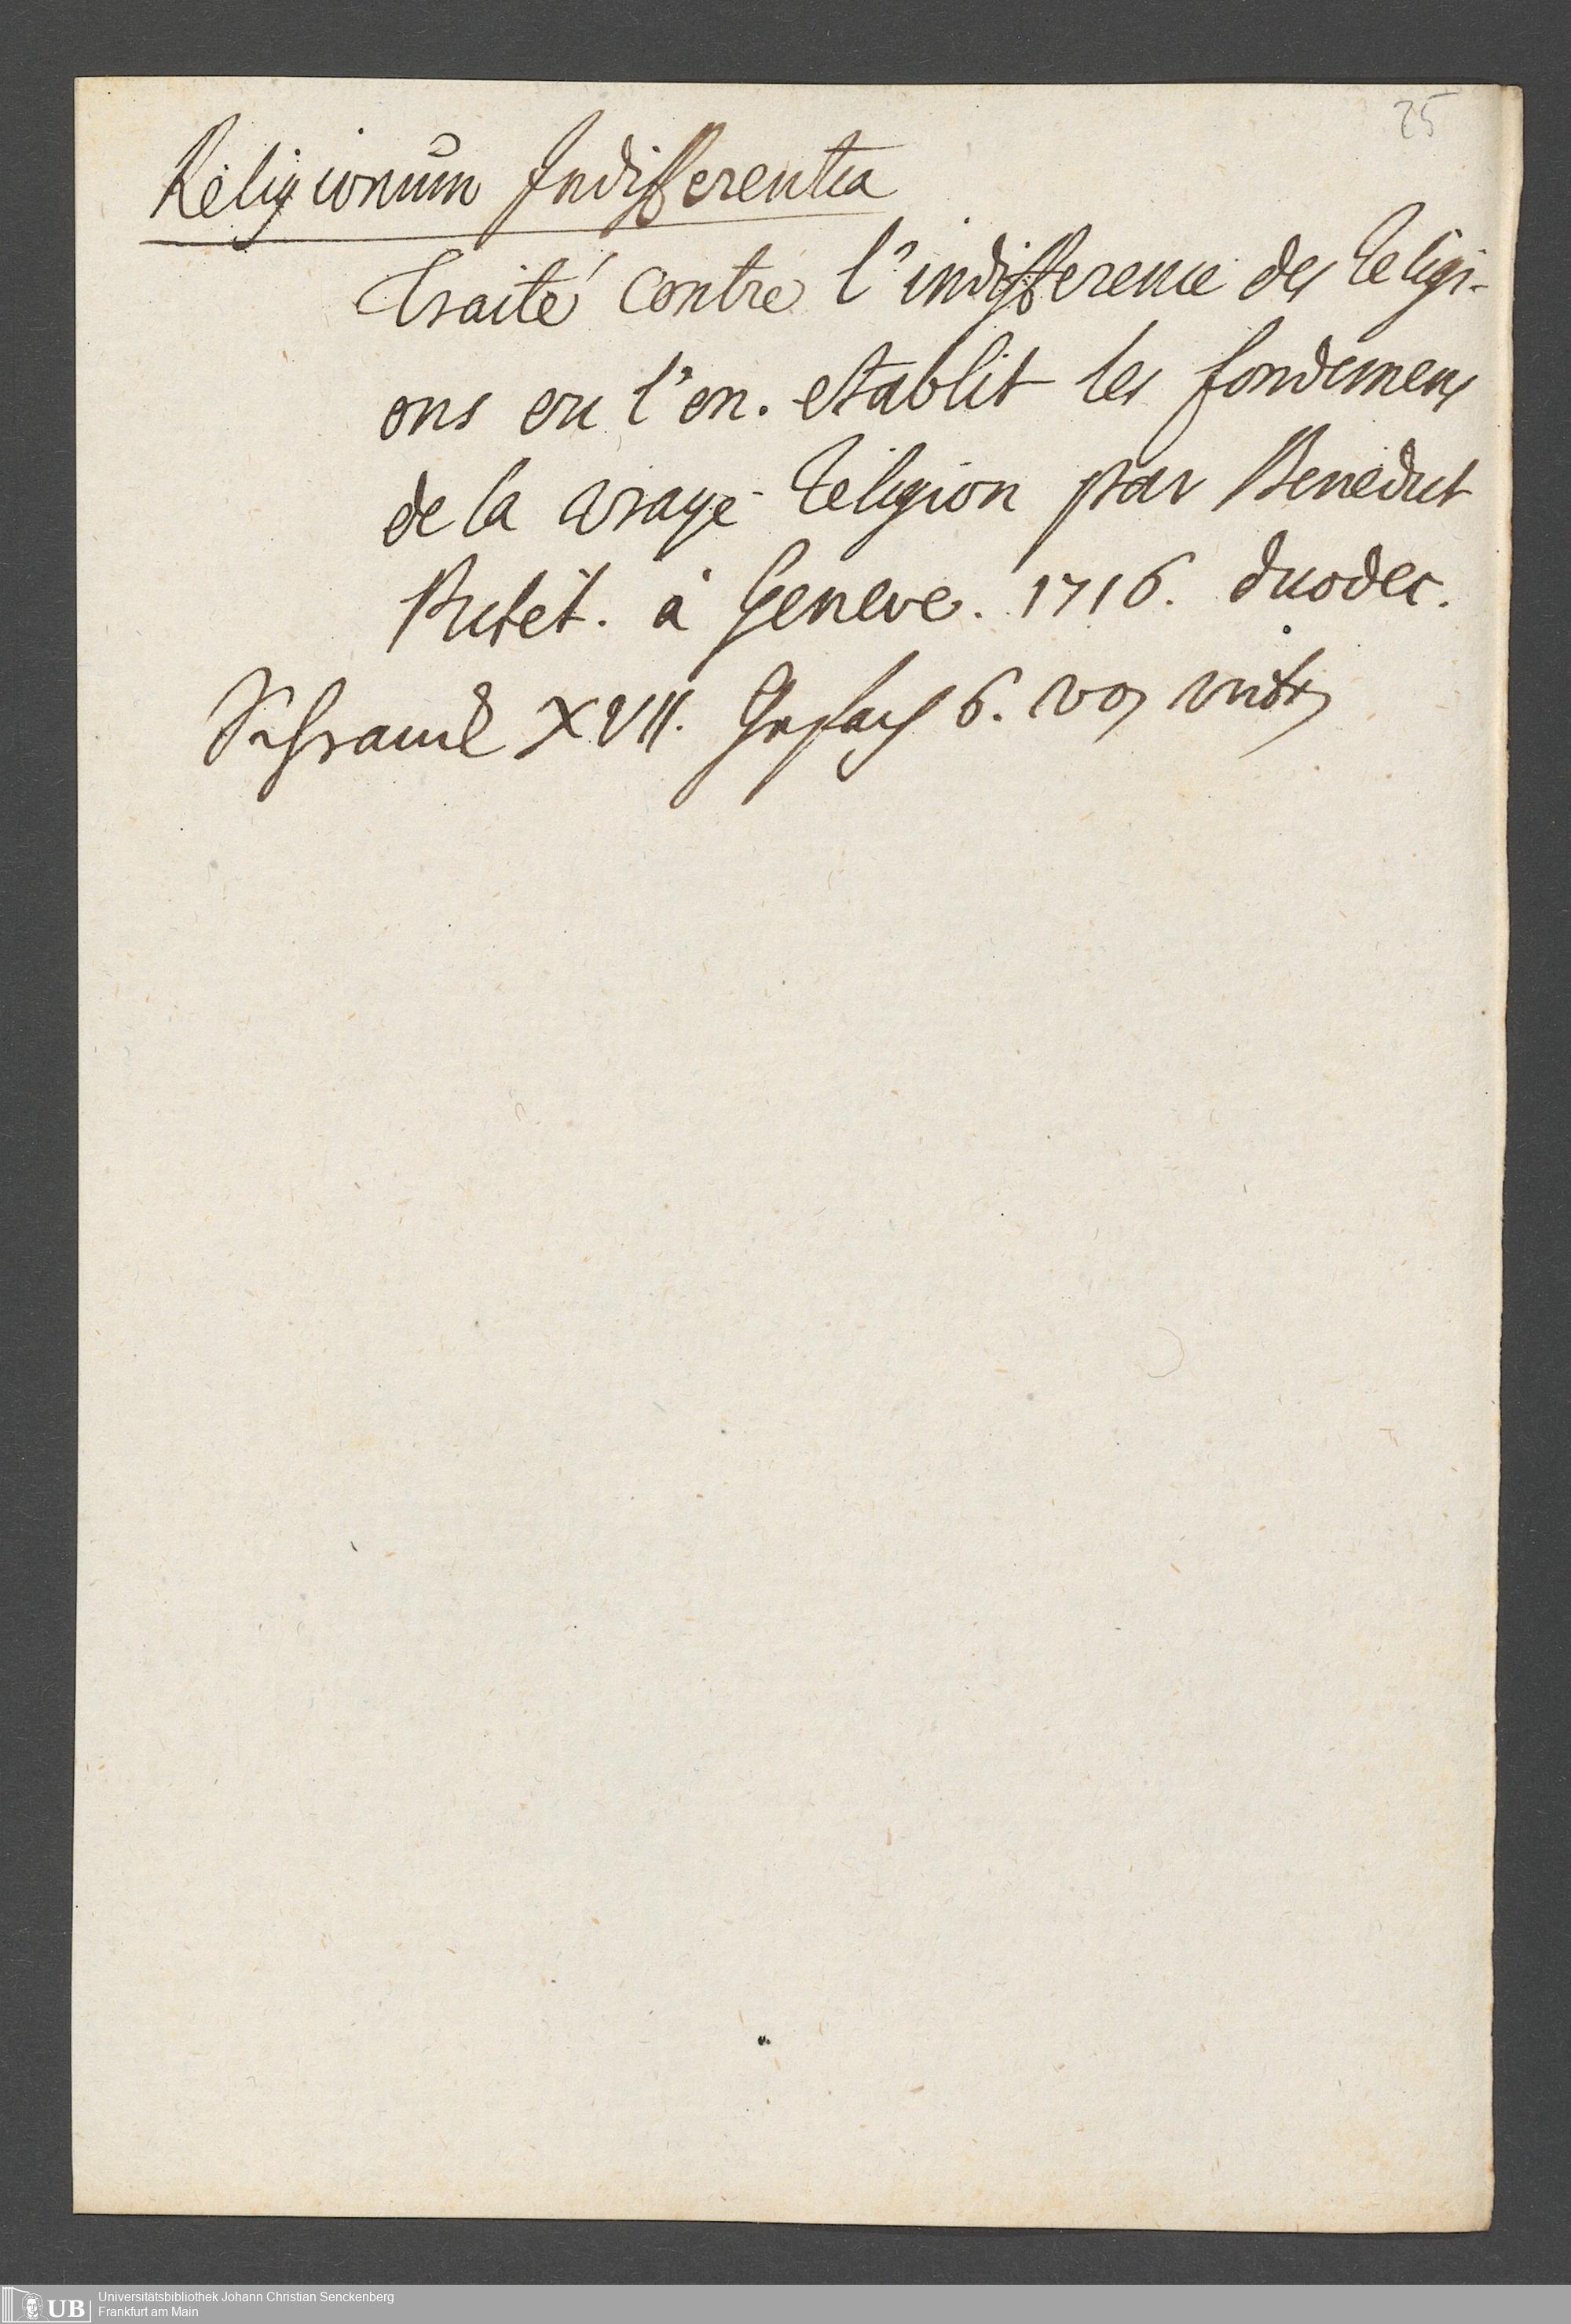 25
Religionum Indifferentia
Traité contre l'indifference des Religi-
ons ou l'on. etablit les fondemens
de la vraye Religion par Benedict
Pictet. à Geneve. 1716. duodec.
Schranck XVII. Gefach 6. von unten
UB Universitätsbibliothek Johann Christian Senckenberg
Frankfurt am Main